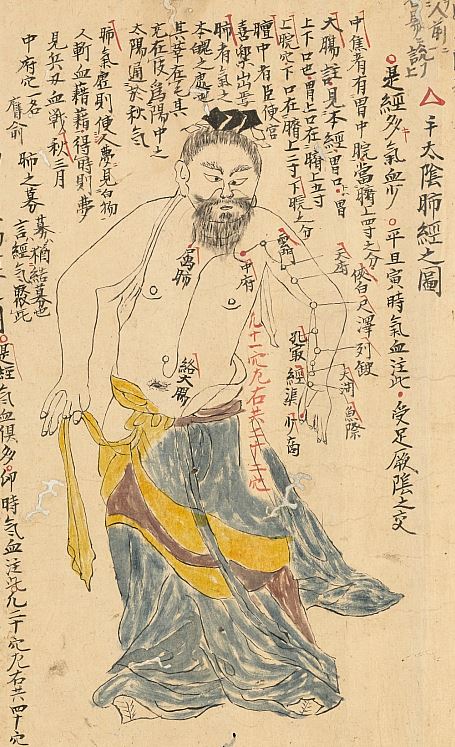 手太陰肺經之圖
是經多氣血少。平旦寅時氣血注此。受足厥陰之交
中焦者有胃中脘當臍上四寸之分
大腸註見本經。胃口。胃
上下口也。胃上口在臍上五寸
上脘穴下口在臍上二寸下脘之分
膻中者臣使宮
喜樂出焉
肺者氣之
本魄之處也
其華在毛其
充在皮為陽中之
太陽通於秋氣
肺氣虛則使人夢見白物
人斬血藉藉得時則夢
見兵刃血戰秋三月
中府穴名膺俞 肺之募
募猶結募也
言經氣聚此
天府
俠白
尺澤
列缺
魚際
雲門
中府
孔最
經渠
少商
屬肺
絡大腸
凡十一穴左右共二十二穴
是經氣血俱多卯時氣血注此凡二十穴左右共四十穴